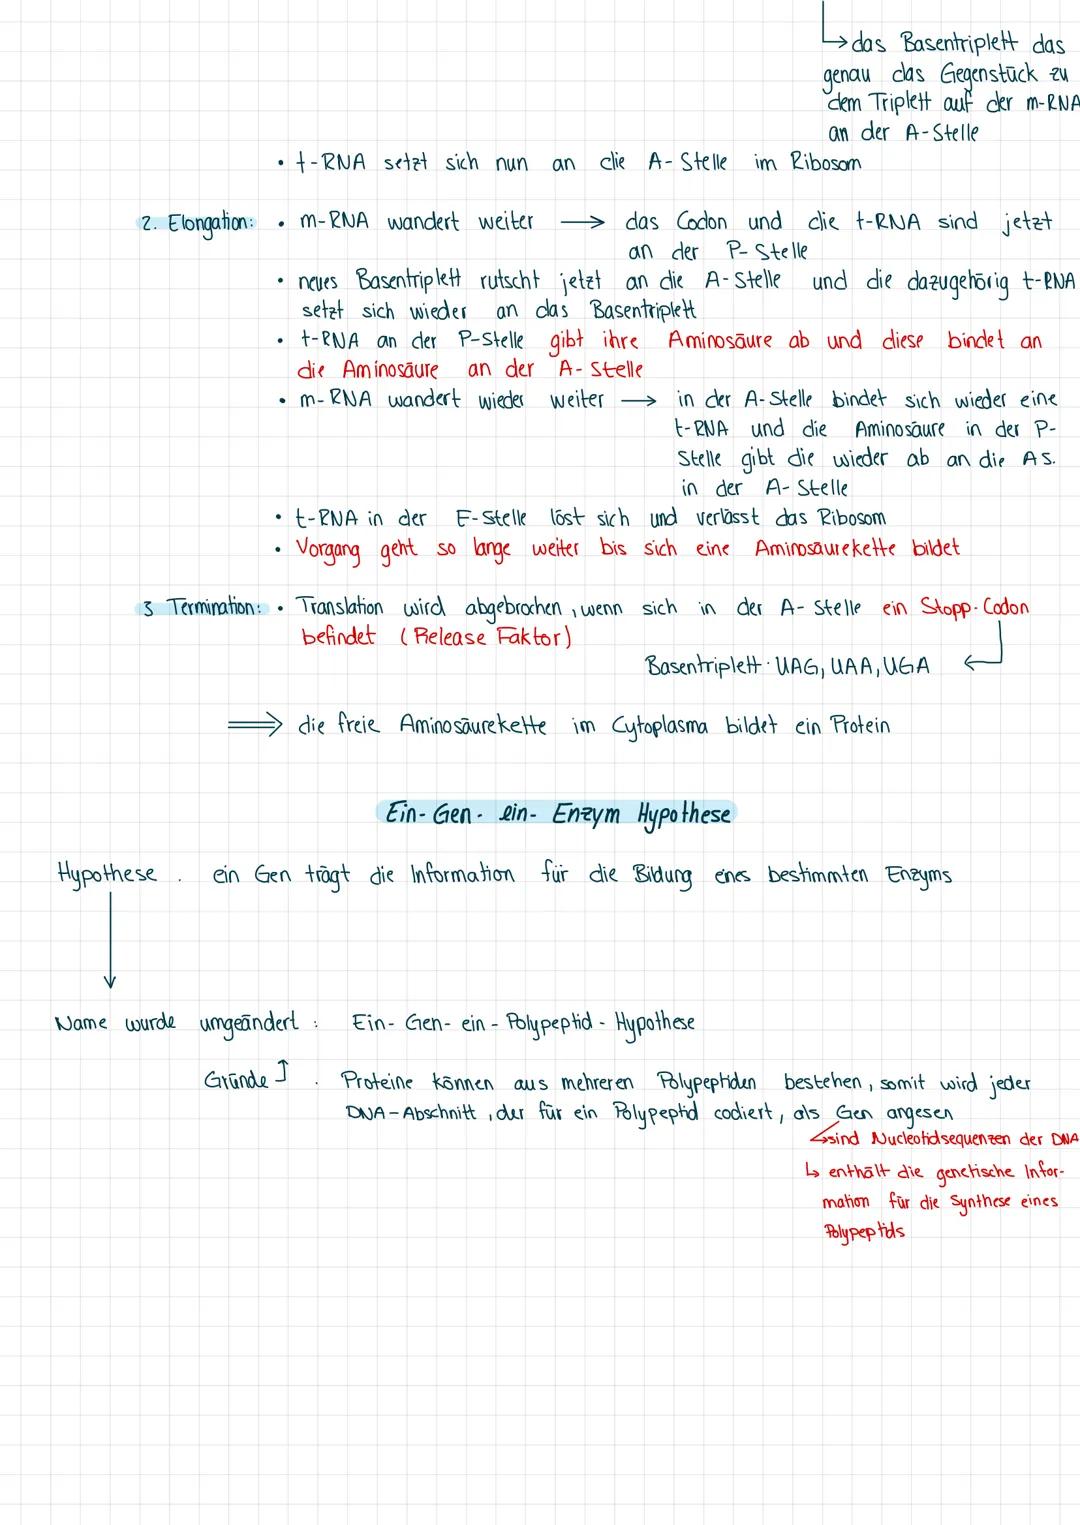 ↳ das Basentriplett das
genau das Gegenstück zu
dem Triplett auf der m-RNA
an der A-Stelle
• t-RNA setzt sich nun an die A-Stelle im Ribosom
2. Elongation: • m-RNA wandert weiter → das Codon und die t-RNA sind jetzt
an der P-Stelle
• neues Basentriplett rutscht jetzt an die A-Stelle und die dazugehörig t-RNA
setzt sich wieder an das Basentriplett
• t-RNA an der P-Stelle gibt ihre Aminosäure ab und diese bindet an
die Aminosäure an der A-Stelle
• m-RNA wandert wieder weiter → in der A-Stelle bindet sich wieder eine
t-RNA und die Aminosäure in der P-
Stelle gibt die wieder ab an die AS.
in der A-Stelle
• t-RNA in der E-Stelle löst sich und verlässt das Ribosom
• Vorgang geht so lange weiter bis sich eine Aminosäurekette bildet
3 Termination: • Translation wird abgebrochen, wenn sich in der A-Stelle ein Stopp-Codon
befindet (Release Faktor)
Basentriplett: UAG, UAA, UGA ←
⇒ die freie Aminosäurekette im Cytoplasma bildet ein Protein
Ein-Gen-ein-Enzym Hypothese
Hypothese. ein Gen trägt die Information für die Bildung eines bestimmten Enzyms
Name wurde umgeändert: Ein-Gen-ein-Polypeptid-Hypothese
Gründe ↑. Proteine können aus mehreren Polypeptiden bestehen, somit wird jeder
DNA-Abschnitt, der für ein Polypeptid codiert, als Gen angesen
↳ sind Nucleotidsequenzen der DNA
↳ enthält die genetische Infor-
mation für die Synthese eines
Polypeptids